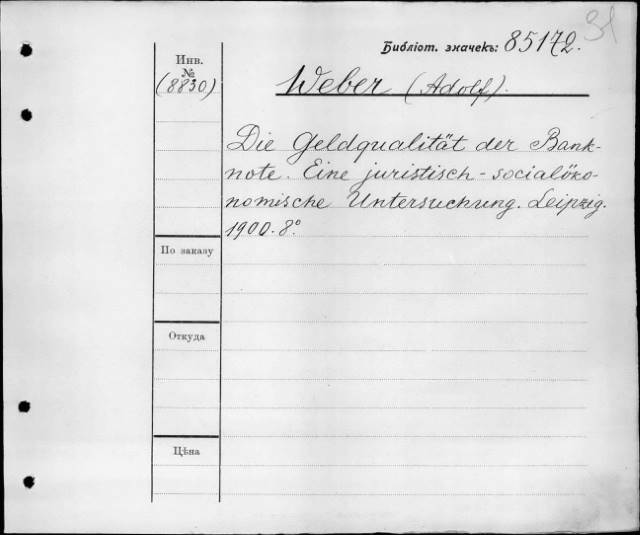 31
Библіот. значекъ: 85172.
Инв.
№
(8830)
Weber (Adolf).
Die Geldqualität der Bank-
note. Eine juristisch-socialöko-
nomische Untersuchung. Leipzig.
1900. 8°
По заказу
Откуда
Цѣна